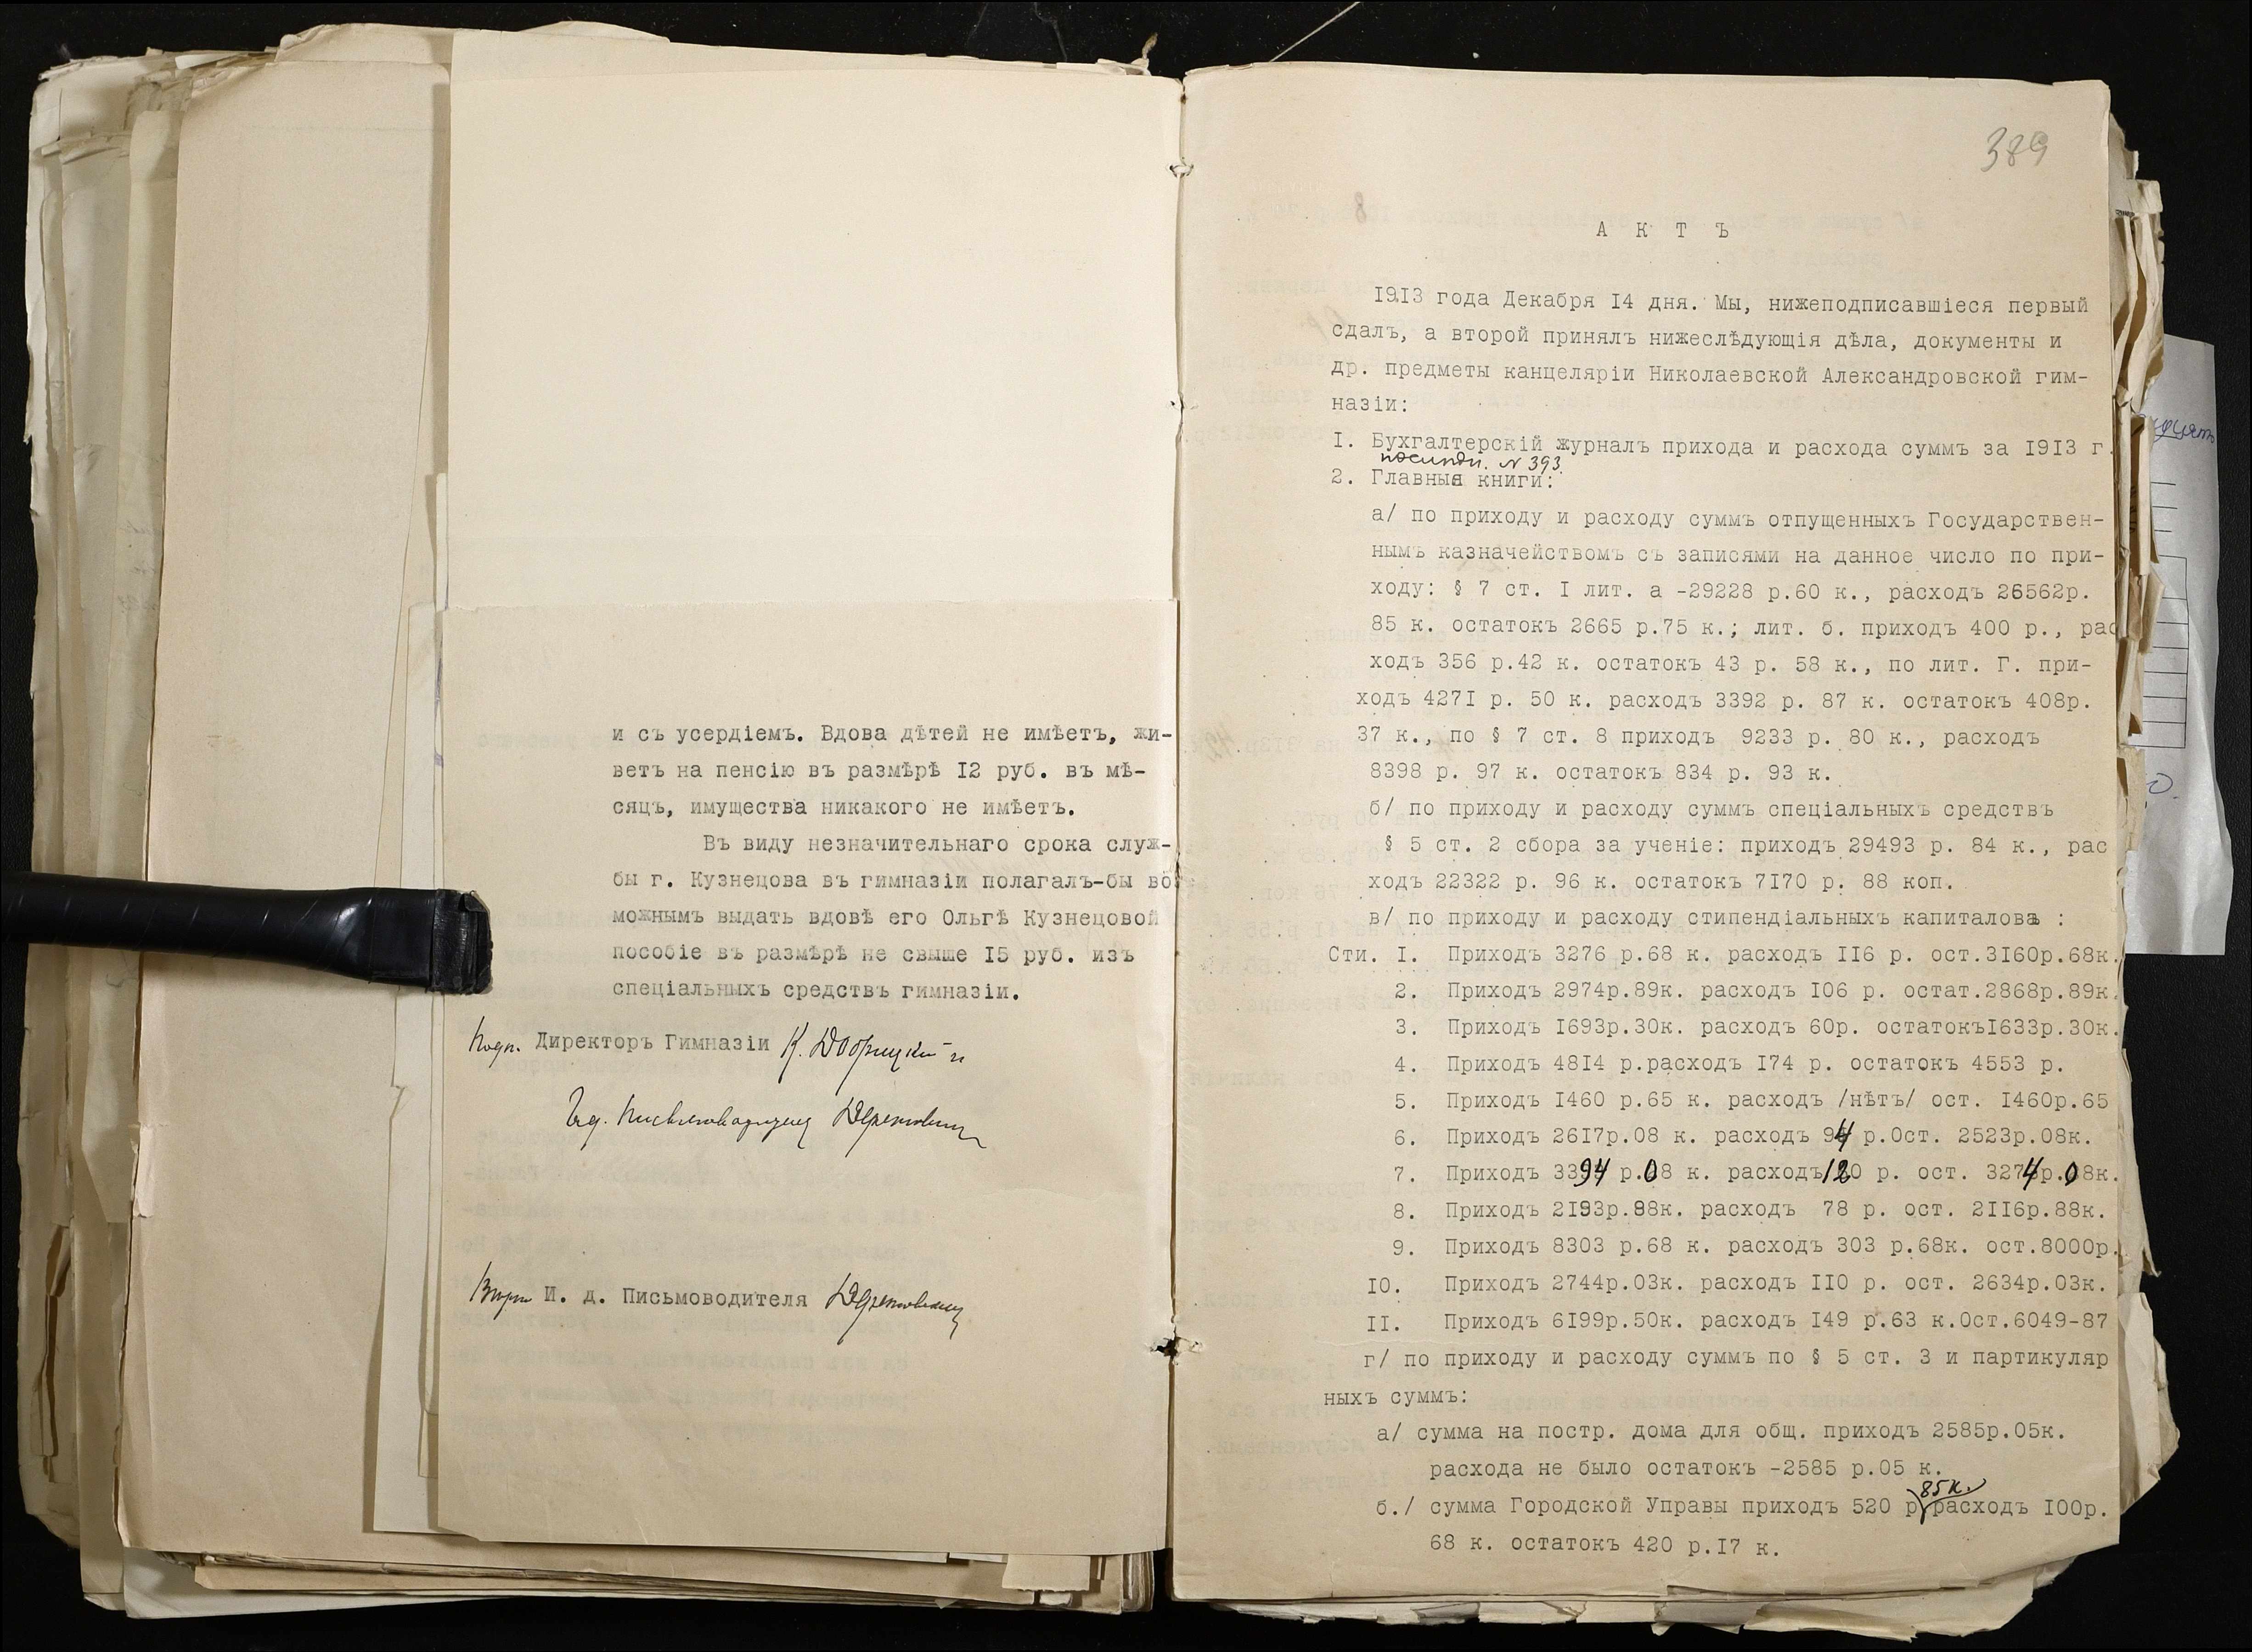 и съ усердіемъ. Вдова дѣтей не имѣетъ, жи-
ветъ на пенсію въ размѣрѣ I2 руб. въ мѣ-
сяцъ, имущества никакого не имѣетъ.
Въ виду незначительнаго срока служ-
бы г. Кузнецова въ гимназіи полагалъ-бы воз
можнымъ выдать вдовѣ его Ольгѣ Кузнецовой
пособіе въ размѣрѣ не свыше I5 руб. изъ
спеціальныхъ средствъ гимназіи.
Подп. Директоръ Гимназіи К.
И. д. Письмоводителя
389
А К Т Ъ
I9I3 года Декабря I4 дня. Мы, нижеподписавшіеся первый
сдалъ, а второй принялъ нижеслѣдующія дѣла, документы и
др. предметы канцеляріи Николаевской Александровской гим-
назіи:
I. Бухгалтерскій журналъ прихода и расхода суммъ за I9I3 г.
N 393.
2. Главныя книги:
а/ по приходу и расходу суммъ отпущенныхъ Государствен-
нымъ казначействомъ съ записями на данное число по при-
ходу: § 7 ст. I лит. а -29228 р.60 к., расходъ 26562р.
85 к. остатокъ 2665 р.75 к.; лит. б. приходъ 400 р., рас
ходъ 356 р.42 к. остатокъ 43 р. 58 к., по лит. Г. при-
ходъ 427I р. 50 к. расходъ 3392 р. 87 к. остатокъ 408р.
37 к., по § 7 ст. 8 приходъ 9233 р. 80 к., расходъ
8398 р. 97 к. остатокъ 834 р. 93 к.
б/ по приходу и расходу суммъ спеціальныхъ средствъ
§ 5 ст. 2 сбора за ученіе: приходъ 29493 р. 84 к., рас
ходъ 22322 р. 96 к. остатокъ 7I70 р. 88 коп.
в/ по приходу и расходу стипендіальныхъ капиталовъ :
Сти. I. Приходъ 3276 р.68 к. расходъ II6 р. ост.3I60р.68к.
2. Приходъ 2974р.89к. расходъ I06 р. остат.2868р.89к.
3. Приходъ I693р.30к. расходъ 60р. остатокъI633р.30к.
4. Приходъ 48I4 р.расходъ I74 р. остатокъ 4553 р.
5. Приходъ I460 р.65 к. расходъ /нѣтъ/ ост. I460р.65
6. Приходъ 26I7р.08 к. расходъ 94 р.Ост. 2523р.08к.
7. Приходъ 3394 р.08 к. расходъ 120 р. ост. 3274р.08к.
8. Приходъ 2I93р.88к. расходъ 78 р. ост. 2II6р.88к.
9. Приходъ 8303 р.68 к. расходъ 303 р.68к. ост.8000р.
I0. Приходъ 2744р.03к. расходъ II0 р. ост. 2634р.03к.
II. Приходъ 6I99р.50к. расходъ I49 р.63 к.Ост.6049-87
г/ по приходу и расходу суммъ по § 5 ст. 3 и партикуляр
ныхъ суммъ:
а/ сумма на постр. дома для общ. приходъ 2585р.05к.
расхода не было остатокъ -2585 р.05 к.
б./ сумма Городской Управы приходъ 520 р 85к. расходъ I00р.
68 к. остатокъ 420 р.I7 к.